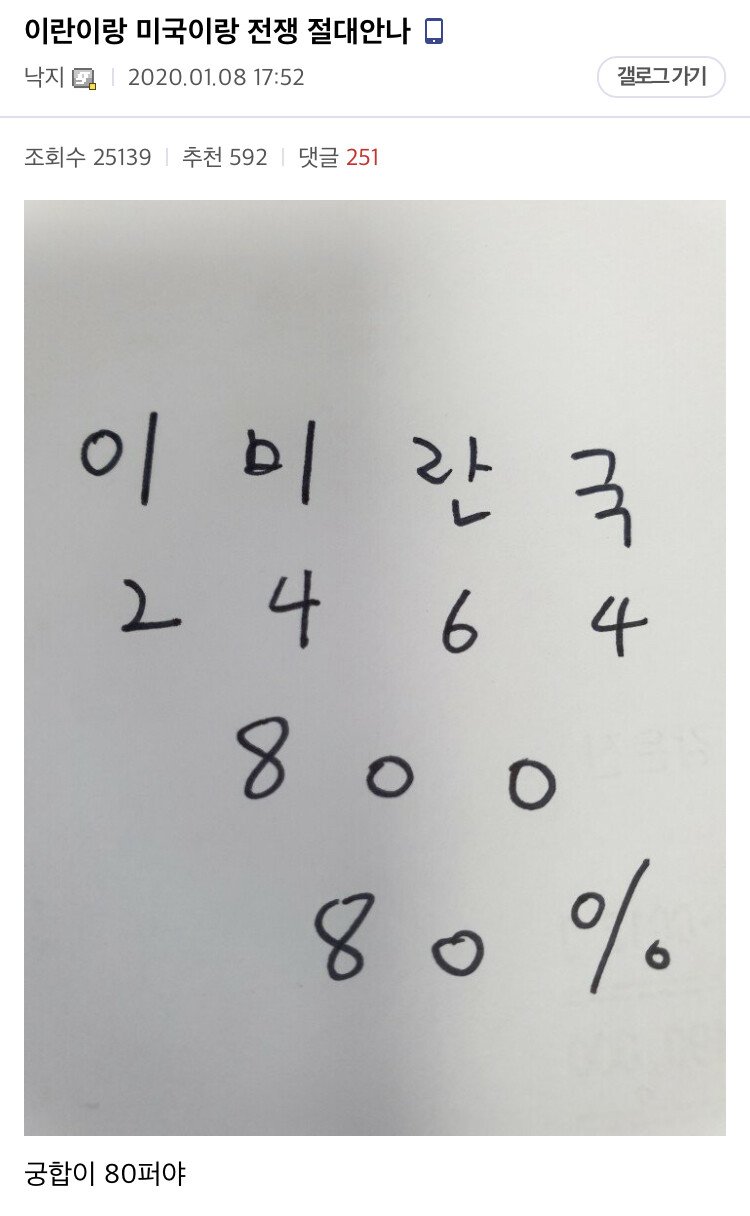 이란이랑 미국이랑 전쟁 절대안나
낙지 2020.01.08 17:52
갤로그 가기
조회수 25139 추천 592 댓글 251
이 미 란 국
2 4 6 4
8 0 0
8 0 %
궁합이 80퍼야